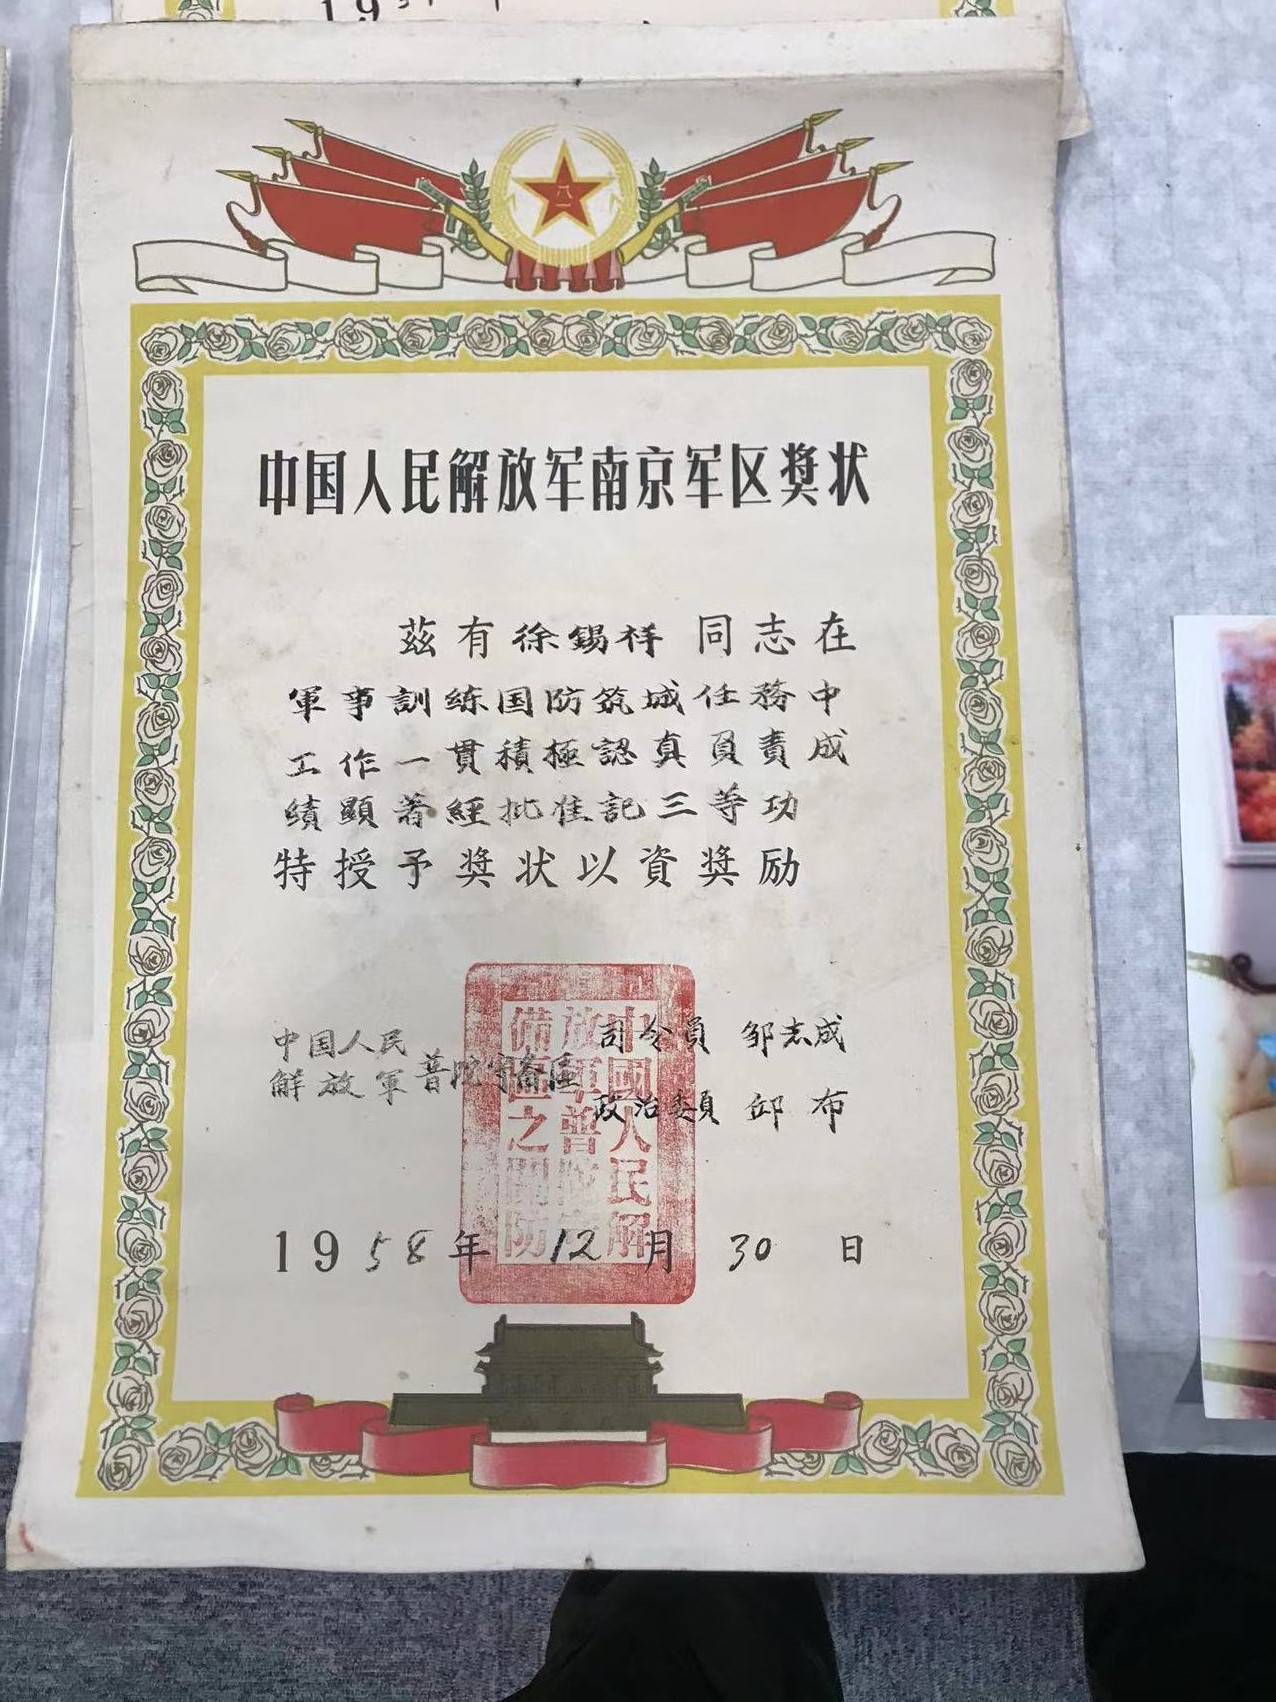 八一
中国人民解放军南京军区奖状
茲有徐錫祥 同志在
軍事訓练国防筑城任務中
工作一貫積極認真負責成
績顯著經批准記三等功
特授予奖状以資奖励
中国人民
解放軍普陀守备區
司令員 邹志成
政治委員 邱布
中國人民解
放軍普陀守
備區之關防
1958年12月30日